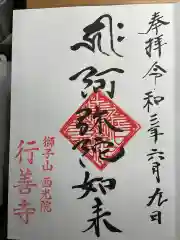 奉拝 令和三年六月九日
阿弥陀如来
獅子山 西光院
行善寺